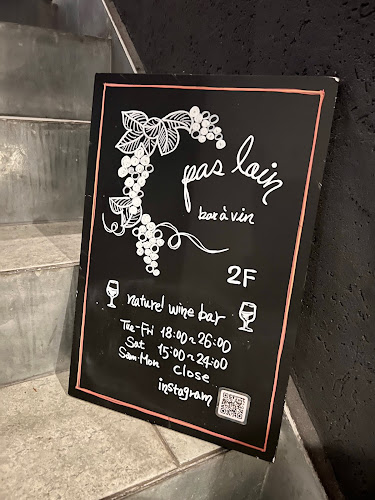 pas loin
bar à vin
2F
naturel wine bar
Tue-Fri 18:00~26:00
Sat 15:00~24:00
Sun・Mon close
instagram